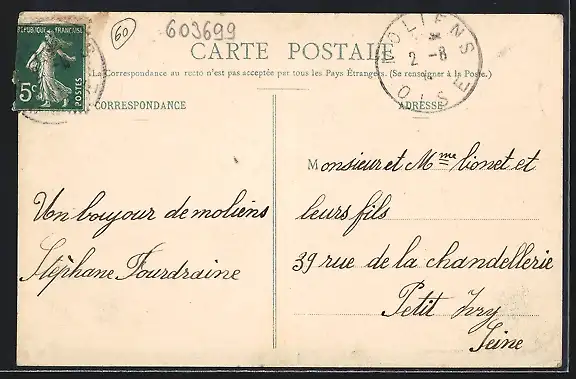 RÉPUBLIQUE FRANÇAISE
5c
POSTES
60
603699
CARTE POSTALE
La Correspondance au recto n'est pas acceptée par tous les Pays Étrangers. (Se renseigner à la Poste.)
MOLIENS
2 -8
OISE
CORRESPONDANCE
ADRESSE
Un boujour de moliens
Stéphane Fourdraine
Monsieur et Mme Vionet et
leurs fils
39 rue de la chandellerie
Petit Ivry
Seine